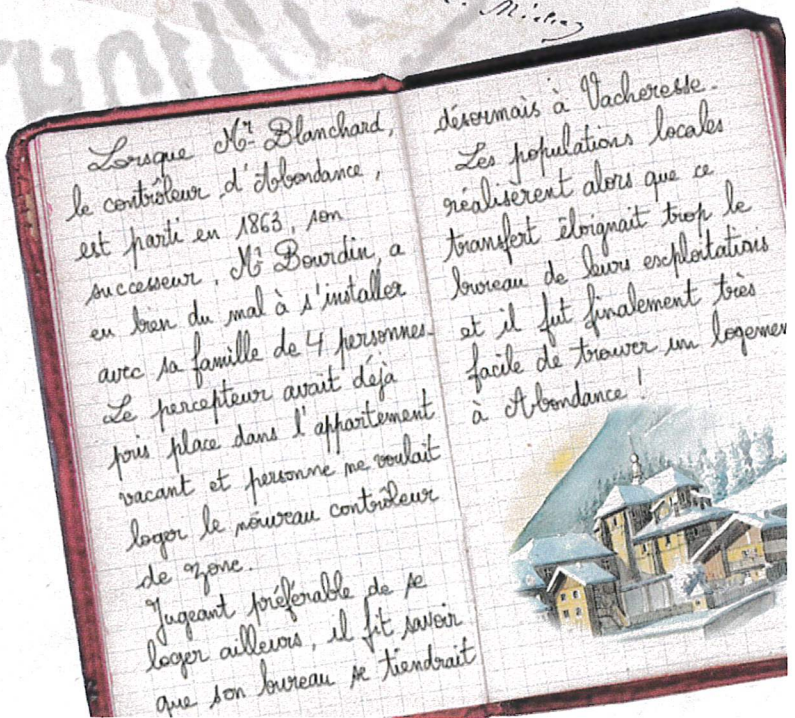 Lorsque Mr Blanchard,
le contrôleur d'Abondance,
est parti en 1863, son
successeur, Mr Bourdin, a
eu bien du mal à s'installer
avec sa famille de 4 personnes.
Le percepteur avait déjà
pris place dans l'appartement
vacant et personne ne voulait
loger le nouveau contrôleur
de zone.
Jugeant préférable de se
loger ailleurs, il fit savoir
que son bureau se tiendrait
désormais à Vacheresse.
Les populations locales
réalisèrent alors que ce
transfert éloignait trop le
bureau de leurs exploitations
et il fut finalement très
facile de trouver un logemen
à Abondance !